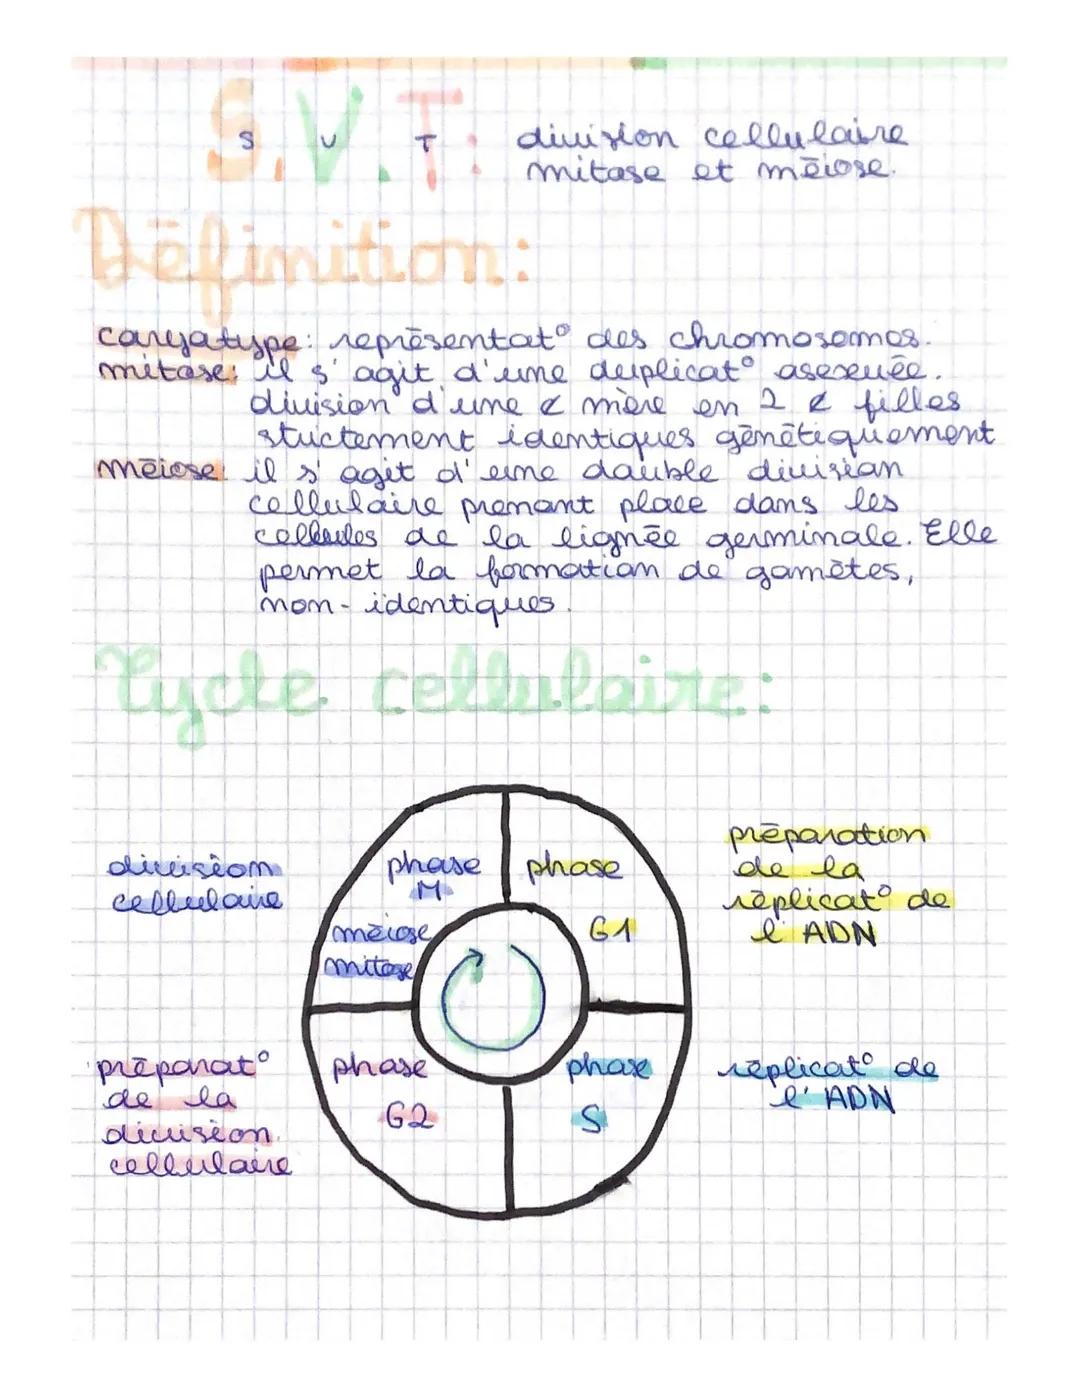 S.V.T:
S V T
division cellulaire
mitose et méiose.
Définition:
caryotype: représentat° des chromosomes.
mitose: il s'agit d'une duplicat° asexuée.
division d'une ¢ mère en 2 ¢ filles
strictement identiques génétiquement
méiose: il s'agit d'une double division
cellulaire prenant place dans les
cellules de la lignée germinale. Elle
permet la formation de gamètes,
non-identiques.
Cycle cellulaire:
division
cellulaire
phase
M
méiose
mitose
phase
G1
préparation
de la
réplicat° de
l'ADN
préparat°
de la
division
cellulaire
phase
G2
phase
S
réplicat° de
l'ADN